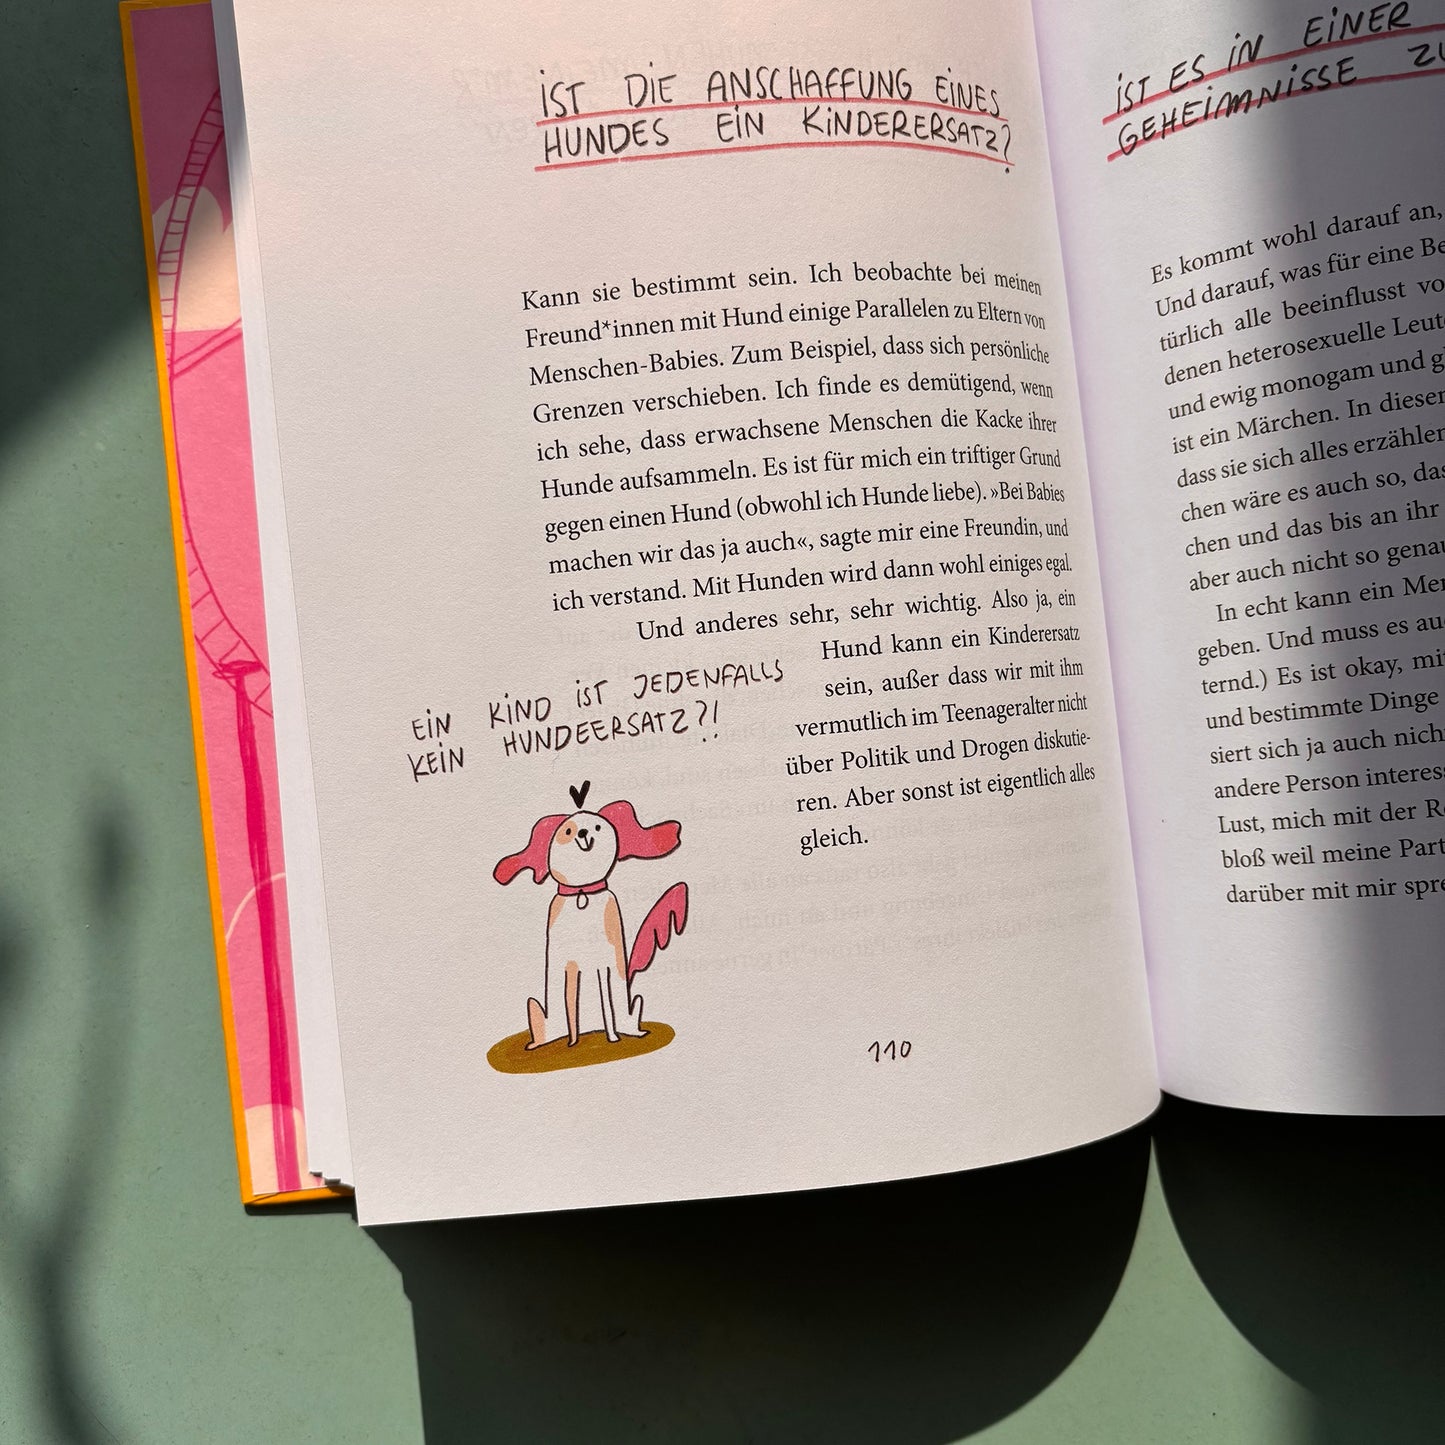 IST DIE ANSCHAFFUNG EINES
HUNDES EIN KINDERERSATZ?
Kann sie bestimmt sein. Ich beobachte bei meinen
Freund*innen mit Hund einige Parallelen zu Eltern von
Menschen-Babies. Zum Beispiel, dass sich persönliche
Grenzen verschieben. Ich finde es demütigend, wenn
ich sehe, dass erwachsene Menschen die Kacke ihrer
Hunde aufsammeln. Es ist für mich ein triftiger Grund
gegen einen Hund (obwohl ich Hunde liebe). »Bei Babies
machen wir das ja auch«, sagte mir eine Freundin, und
ich verstand. Mit Hunden wird dann wohl einiges egal.
Und anderes sehr, sehr wichtig. Also ja, ein
Hund kann ein Kinderersatz
sein, außer dass wir mit ihm
vermutlich im Teenageralter nicht
über Politik und Drogen diskutie-
ren. Aber sonst ist eigentlich alles
gleich.
EIN KIND IST JEDENFALLS
KEIN HUNDEERSATZ?!
110
IST ES IN EINER
GEHEIMNISSE
Es kommt wohl darauf an,
Und darauf, was für eine
türlich alle beeinflusst
denen heterosexuelle
und ewig monogam und
ist ein Märchen. In
dass sie sich alles
chen wäre es auch so,
chen und das bis an ihr
aber auch nicht so
In echt kann ein
geben. Und muss es
ternd.) Es ist okay,
und bestimmte Dinge
siert sich ja auch
andere Person
Lust, mich mit der
bloß weil meine
darüber mit mir